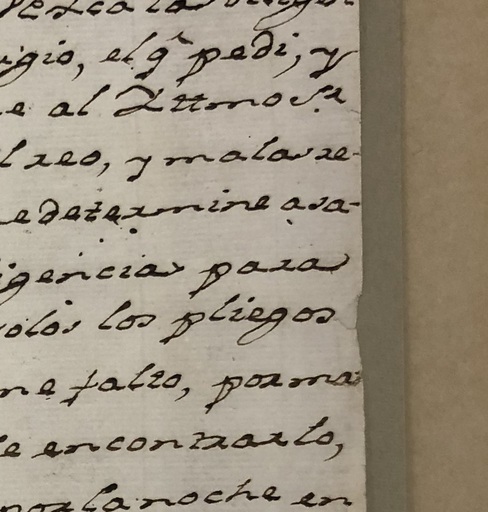 ugio, el qᵉ pedi, y
e al Yttmo Sr
l reo, y mala re-
e determine a sa-
igencias para
solos los pliegos
ne falto, por ma
e encontrarlo,
por la noche en